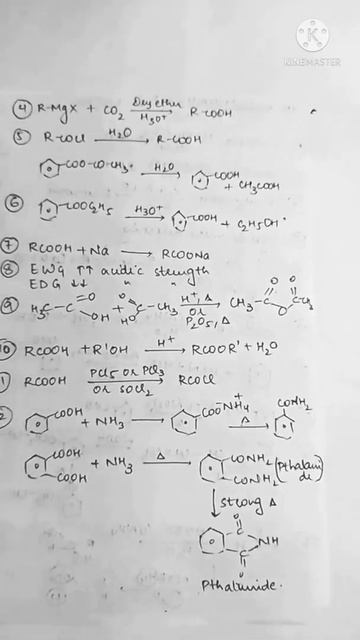 KINEMASTER
④ R-MgX + CO2 Dry ether H3O+ → R-COOH
⑤ R-COCl H2O → R-COOH
COO-CO-CH3 H2O → COOH + CH3COOH
⑥ COOC2H5 H3O+ → COOH + C2H5OH
⑦ RCOOH + Na → RCOONa
⑧ EWG ↑↑ acidic strength
EDG ↓↓ " "
⑨ H3C-C O OH + O HO C-CH3 H+, Δ or P2O5, Δ → CH3-C O O C O CH3
10 RCOOH + R'OH H+ → RCOOR' + H2O
1 RCOOH PCl5 or PCl3 or SOCl2 → RCOCl
2 COOH + NH3 → COO-NH4+ Δ → CONH2
COOH COOH + NH3 Δ → CONH2 CONH2
↓ strong Δ
O C NH C O
Pthalimide.